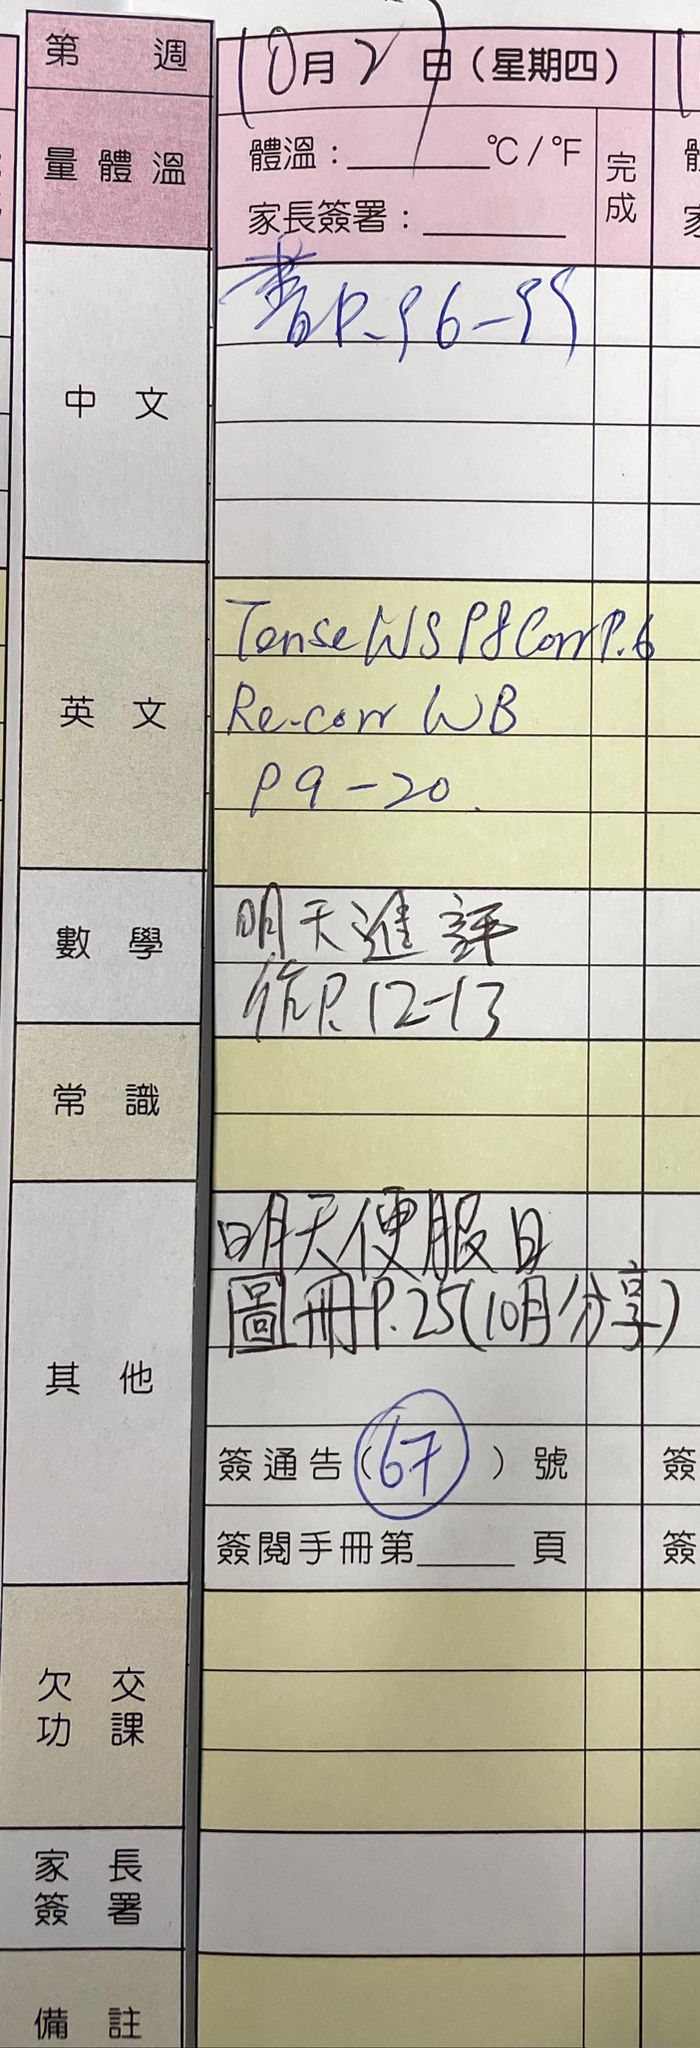 第 週
10月2日（星期四）
量體溫
體溫：______°C / °F
完成
家長簽署：______
中文
書P.96-99
英文
Tense WS P8 Corr P.6
Re-corr WB
P9-20
數學
明天進評
作P.12-13
常識
其他
明天便服日
圖冊P.25(10月分享)
簽通告（67）號
簽
簽閱手冊第______頁
簽
欠交
功課
家長
簽署
備註